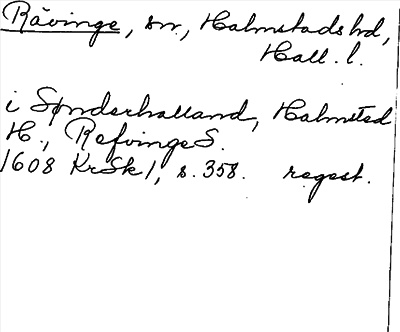 Rävinge, sn, Halmstads hd,
Hall. l.
i Sønderhalland, Halmsted
H., Refvinge S.
1608 KrSk 1, s. 358. regest.